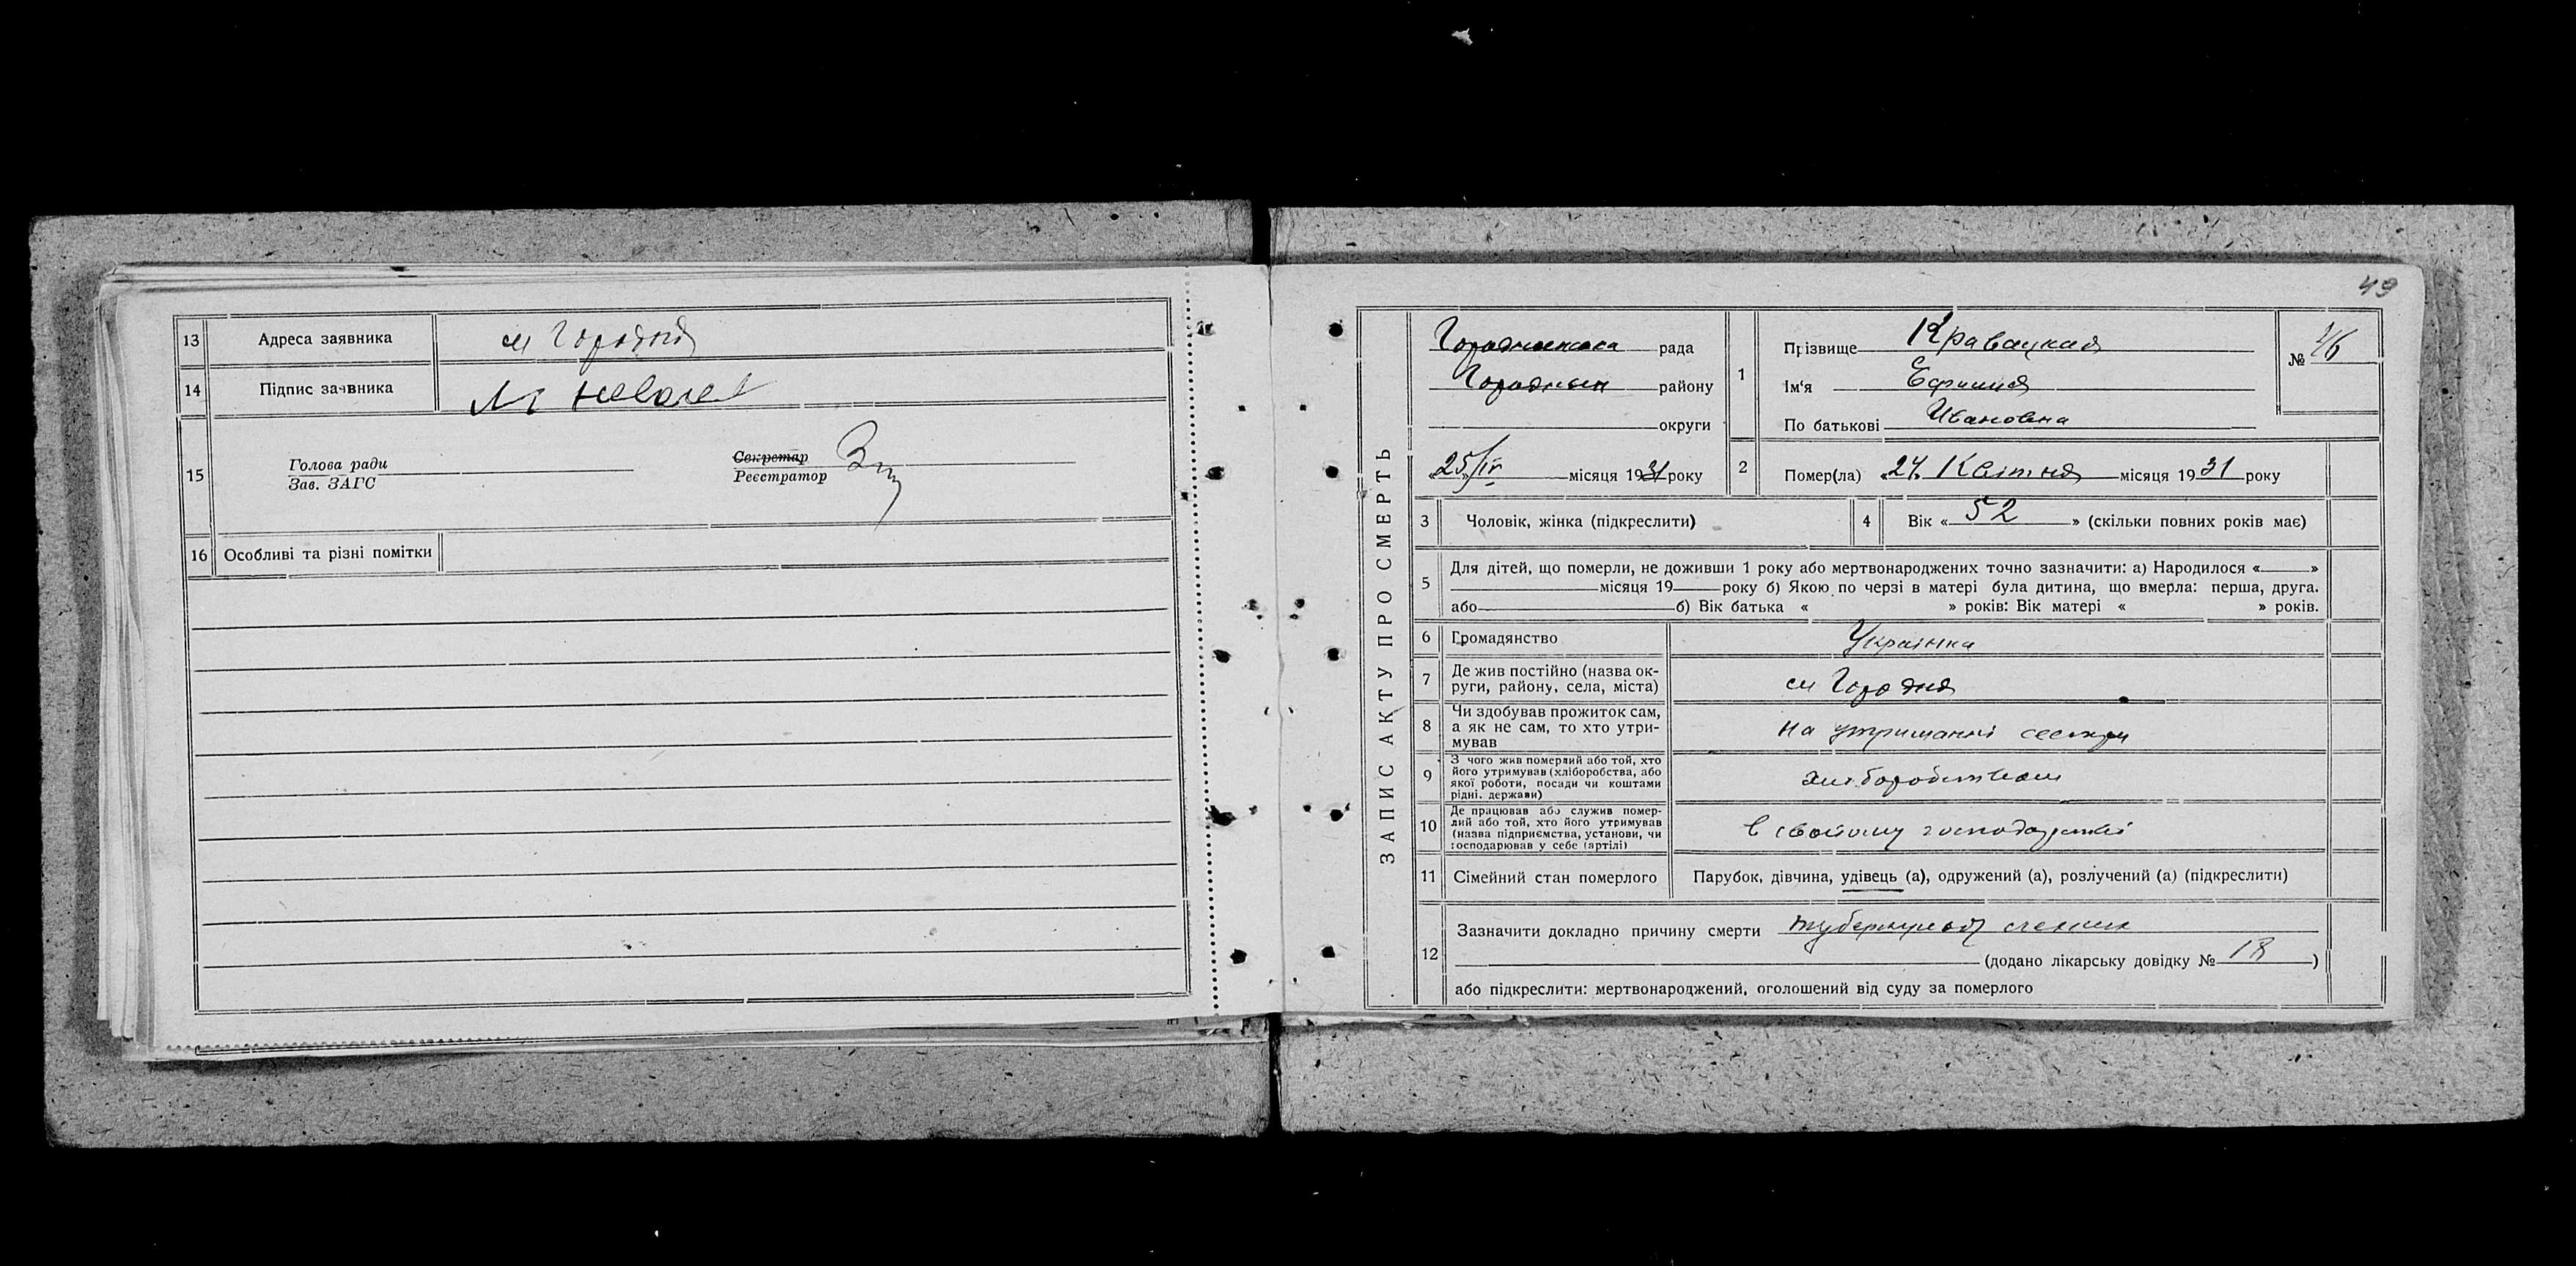 13 Адреса заявника м Городня
14 Підпис заявника
15 Голова ради
Зав. ЗАГС
Секретар
Реєстратор
16 Особливі та різні помітки
49
ЗАПИС АКТУ ПРО СМЕРТЬ
Городнянська рада
Городнян району
округи
«25/IV місяця 1931 року
1 Прізвище Кравацкая
Ім'я Ефимия
По батькові Ивановна
№ 46
2 Помер(ла) «24» Квітня місяця 1931 року
3 Чоловік, жінка (підкреслити)
4 Вік «52» (скільки повних років має)
5 Для дітей, що померли, не доживши 1 року або мертвонароджених точно зазначити: а) Народилося « »
місяця 19 року б) Якою по черзі в матері була дитина, що вмерла: перша, друга.
або б) Вік батька « » років: Вік матері « » років.
6 Громадянство Українка
7 Де жив постійно (назва ок-
руги, району, села, міста) м Городня
8 Чи здобував прожиток сам,
а як не сам, то хто утри-
мував на утриманні сестри
9 З чого жив померлий або той, хто
його утримував (хліборобства, або
якої роботи, посади чи коштами
рідні, держави) хліборобством
10 Де працював або служив помер-
лий або той, хто його утримував
(назва підприємства, установи, чи
господарював у себе (артілі) в свойому господарстві
11 Сімейний стан померлого Парубок, дівчина, удівець (а), одружений (а), розлучений (а) (підкреслити)
12 Зазначити докладно причину смерти туберкульоз легких
(додано лікарську довідку № 18)
або підкреслити: мертвонароджений, оголошений від суду за померлого